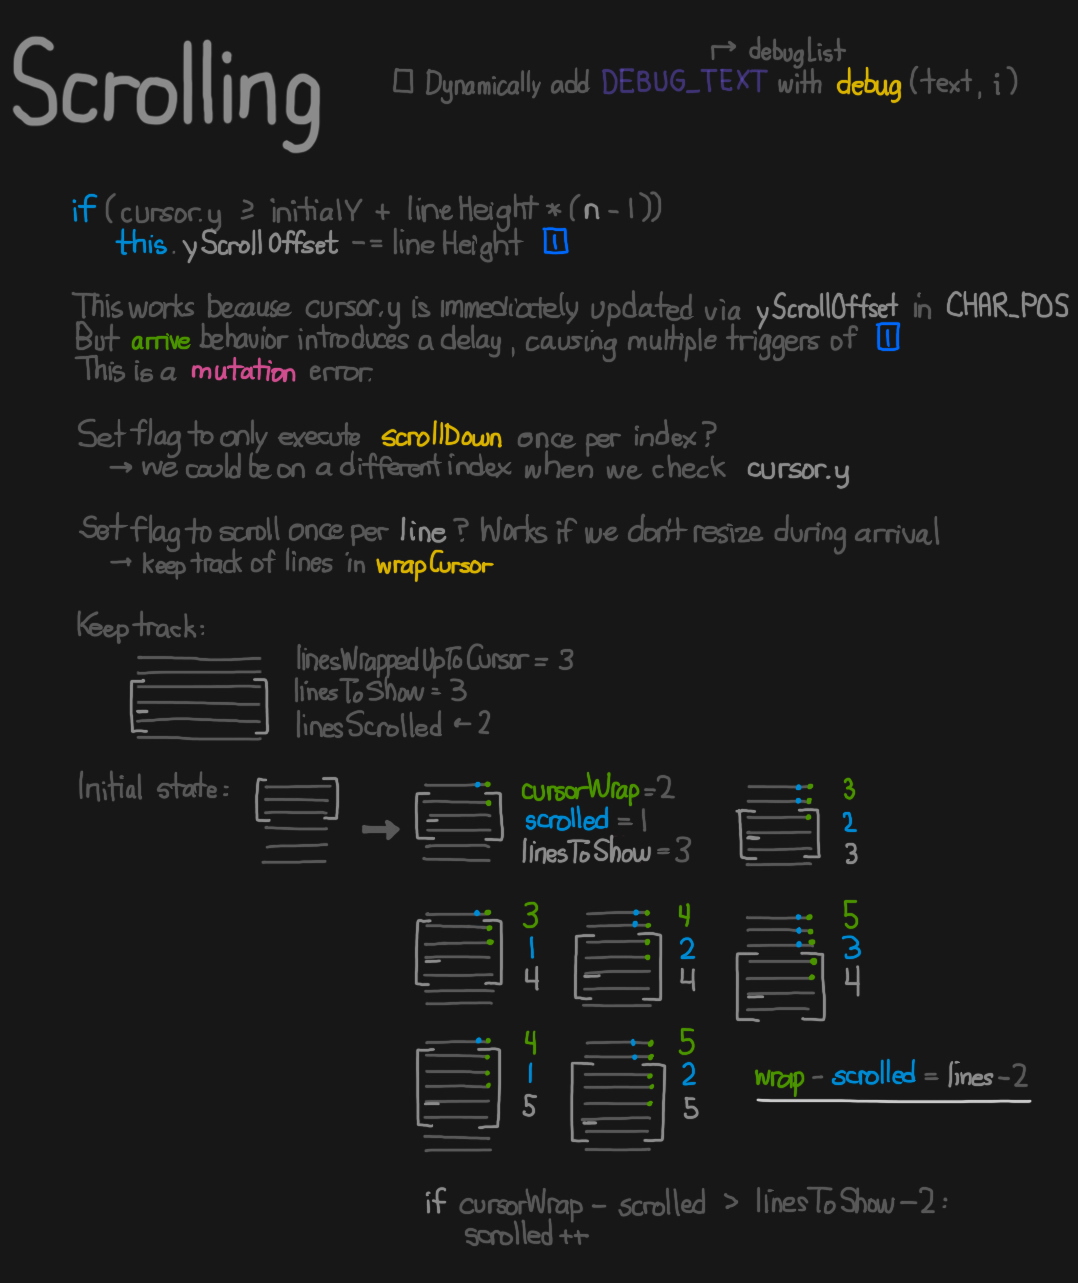 Scrolling
→ debugList
□ Dynamically add DEBUG_TEXT with debug (text, i)
if (cursor.y ≥ initialY + lineHeight * (n - 1))
this.yScrollOffset -= lineHeight 1
This works because cursor.y is immediately updated via yScrollOffset in CHAR_POS
But arrive behavior introduces a delay, causing multiple triggers of 1
This is a mutation error.
Set flag to only execute scrollDown once per index?
→ we could be on a different index when we check cursor.y
Set flag to scroll once per line? Works if we don't resize during arrival
→ keep track of lines in wrapCursor
Keep track:
linesWrappedUpToCursor = 3
linesToShow = 3
linesScrolled ← 2
Initial state:
→
cursorWrap = 2
scrolled = 1
linesToShow = 3
3
2
3
3
1
4
4
2
4
5
3
4
4
1
5
5
2
5
wrap - scrolled = lines - 2
if cursorWrap - scrolled > linesToShow - 2:
scrolled ++